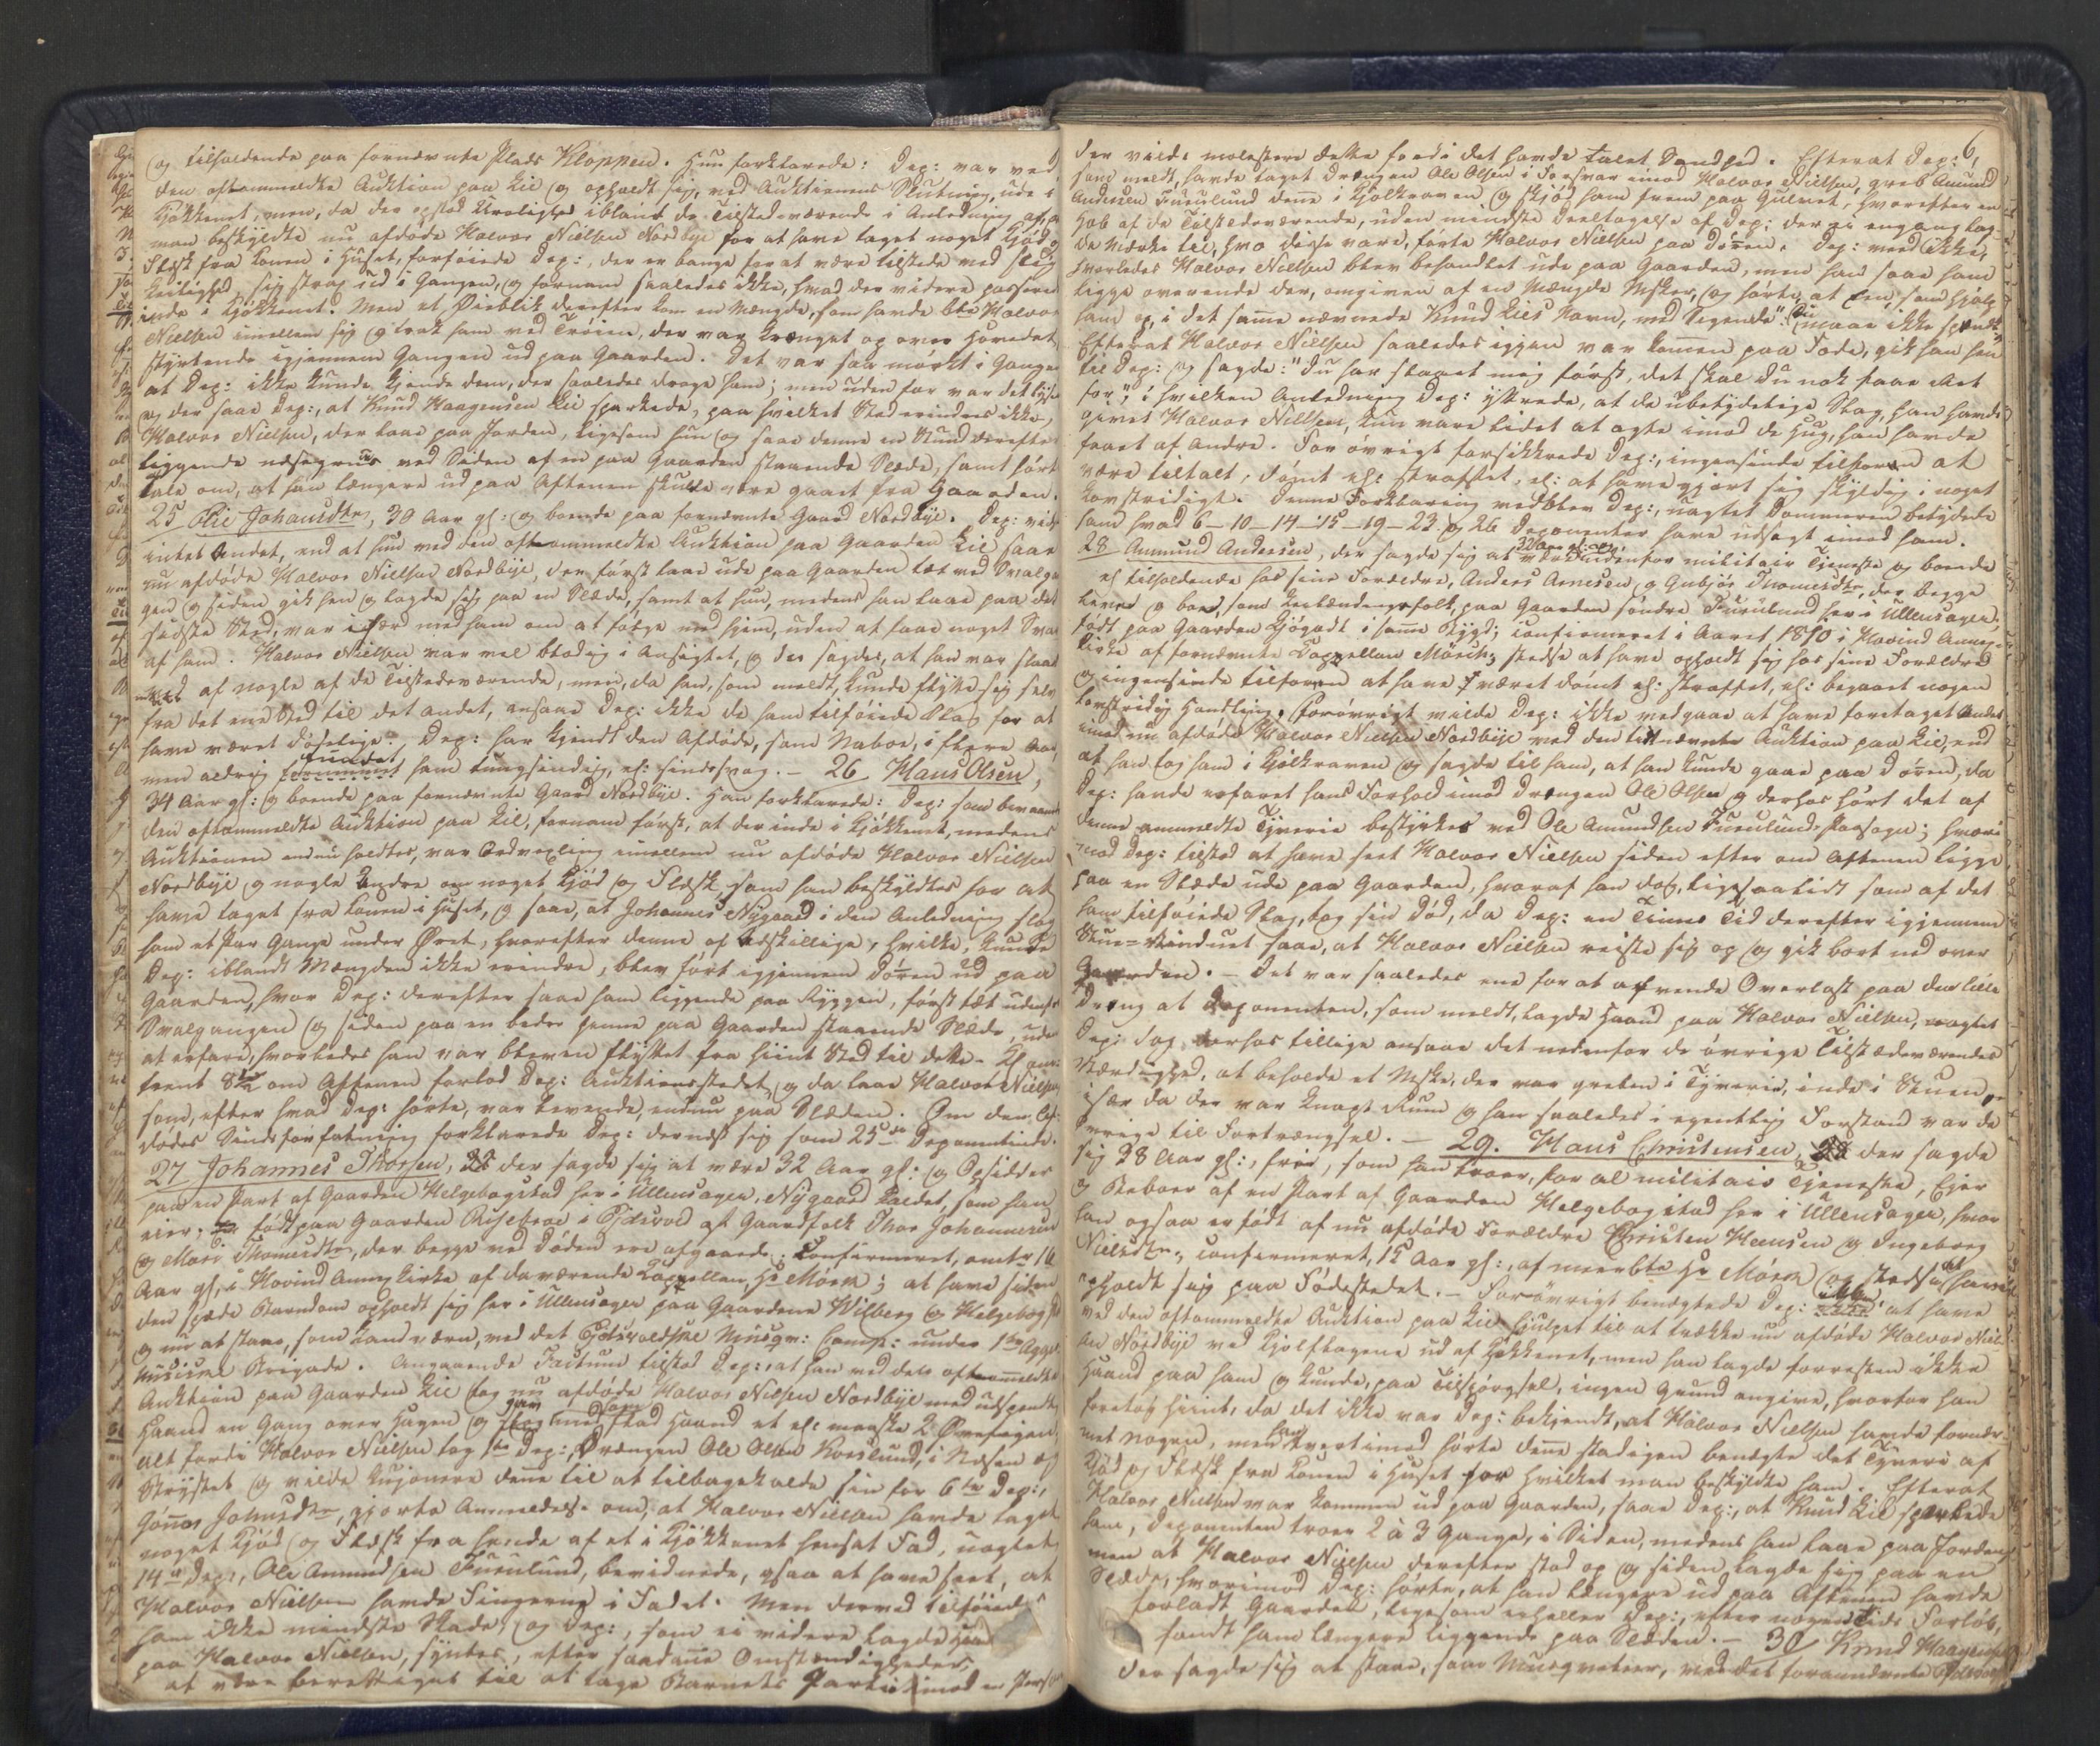 og tilholdende paa fornævnte Plads Kloppen. Hun forklarede: Dep: var ved
den oftommeldte Auktion paa Lie og opholdt sig, ved Auktionens Slutning, ude i
Kjøkkenet, men, da der opstod Urolighed iblandt de Tilstedeværende i Anledning af, at
man beskyldte nu afdøde Halvor Nielsen Nordbye for at have taget noget Kjød og
Flesk fra Konen i Huset, forføiede Dep:, der er bange for at være tilstede ved slig
Leilighed, sig strax ud i Gangen, og fornam saaledes ikke, hvad der videre passerede
inde i Kjøkkenet. Men et Øieblik derefter kom en Mængde, som havde bte Halvor
Nielsen imellem sig og trak ham ved Trøien, der var krænget op over Hovedet,
styrtende igjennem Gangen ud paa Gaarden. Det var saa mørkt i Gangen
at Dep: ikke kunde kjende dem, der saaledes droge ham; men uden for var det lyst
og der saae Dep:, at Knud Haagensen Lie sparkede, paa hvilket Sted erindres ikke,
Halvor Nielsen, der laae paa Jorden, ligesom hun og saae denne en Stund derefter
liggende næsegruus ved Siden af en paa Gaarden staaende Slæde, samt hørt
tale om, at han længere ud paa Aftenen skulde være gaaet fra Gaarden.
25 Olie Johansdtr, 30 Aar gl: og boende paa fornævnte Gaard Nordbye. Dep: vidste
intet Andet, end at hun ved den oftommeldte Auktion paa Gaarden Lie saae
nu afdøde Halvor Nielsen Nordbye, der først laae ude paa Gaarden tæt ved Svalgan
gen og siden gik hen og lagde sig paa en Slæde, samt at hun, medens han laae paa det
sidste Sted, var i færd med ham om at følge med hjem, uden at faae noget Svar
af ham. Halvor Nielsen var vel blodig i Ansigtet, og der sagdes, at han var slaaet
af nogle af de Tilstedeværende, men, da han, som meldt, kunde flytte sig selv
fra det ene Sted til det andet, ansaae Dep: ikke de ham tilføiede Slag for at
have været dødelige. Dep: har kjendt den Afdøde, som Naboe, i flere Aar,
men aldrig fundet ham tungsindig, el: sindssvag. – 26 Hans Olsen,
34 Aar gl: og boende paa fornævnte Gaard Nordbye. Han forklarede: Dep: som
den oftommeldte Auktion paa Lie, fornam først, at der inde i Kjøkkenet, medens
Auktionen endnu holdtes, var Ordvexling imellem nu afdøde Halvor Nielsen
Nordbye og nogle Andre om noget Kjød og Flesk, som han beskyldtes for at
have taget fra Konen i Huset, og saae, at Johannes Nygaard i den Anledning slog
ham et Par Gange under Øret, hvorefter denne af Adskillige, hvilke, kunde
Dep: iblandt Mængden ikke erindre, blev ført igjennem Døren ud paa
Gaarden, hvor Dep: derefter saae ham liggende paa Ryggen, først tæt udenfor
Svalgangen og siden paa en bedre henne paa Gaarden staaende Slæde, uden
at erfare, hvorledes han var bleven flyttet fra hiint Sted til dette. Kl. om-
trent 8½ om Aftenen forlod Dep: Auktionsstedet, og da laae Halvor Nielsen
som, efter hvad Dep: hørte, var levende, endnu paa Slæden. Om den Af-
dødes Sindsforfatning forklarede Dep: dernæst sig som 25de Deponentinde.
27 Johannes Thorsen, der sagde sig at være 32 Aar gl: og Opsidder
paa en Part af Gaarden Helgebogstad her i Ullensager, Nygaard kaldet, som han
eier, født paa Gaarden Risebroe i Eidsvold af Gaardfolk Thor Johannesen
og Mari Thomesdtr, der begge ved Døden ere afgaaede; Confirmeret, omtr 16
Aar gl, i Hovind Annexkirke af daværende Capellan Hr Mörch; at have siden
den spæde Barndom opholdt sig her i Ullensager paa Gaardene Wilberg og Helgebogstad
og nu at staae, som Landværn, ved det Eidsvoldske Musqm: Comp: under 1ste Agge.
Musicum Brigade. Angaaende Factum tilstod Dep:, at han ved den oftommeldte
Auktion paa Gaarden Lie tog nu afdøde Halvor Nielsen Nordbye med udspændt
Haand en Gang over Hagen og gav ham med flad Haand et el: maaske 2 Ørefigen,
alt fordi Halvor Nielsen tog 1ste Dep:, Drængen Ole Olsen Korslund, i Næsen og
Strubet og vilde kujonere denne til at tilbagekalde sin for 6te Dep:,
Gønnor Johnsdtr, gjorte Anmeldelse om, at Halvor Nielsen havde taget
noget Kjød og Flesk fra hende af et i Kjøkkenet hensat Fad, uagtet
14de Dep:, Ole Amundsen Furulund, bevidnede, ogsaa at have seet, at
Halvor Nielsen havde Fingrene i Fadet. Men derved tilføiedes
ham ikke mindste Skade og Dep:, som ei videre lagde Haand
paa Halvor Nielsen, syntes, efter saadanne Omstændigheder,
at være berettiget til at tage Barnets Partie imod en Person
6,
der vilde molestere dette fordi det havde talet Sandhed. Efterat Dep:
som meldt, havde taget Drengen Ole Olsen i Forsvar imod Halvor Nielsen, greb Amund
Andersen Furulund denne i Kjolkraven og skjød ham frem paa Gulvet, hvorefter en
Hob af de Tilstedeværende, uden mindste Deeltagelse af Dep: der ei engang lag-
de Mærke til, hvo disse vare, førte Halvor Nielsen paa Døren. Dep: veed ikke,
hvorledes Halvor Nielsen blev behandlet ude paa Gaarden, men han saae ham
ligge overende der, omgiven af en Mængde Msker, og hørte, at een, som hjalp
ham op, i det samme nævnede Knud Lies Navn, ved Sigende: "Du maae ikke sparke"
Efterat Halvor Nielsen saaledes iggjen var kommen paa Føde, gik han hen
til Dep: og sagde: "du har slaaet mig først, det skal du nok faae Aat
for," i hvilken Anledning Dep: yttrede, at de ubetydelige Slag, han havde
givet Halvor Nielsen, kun vare lidet at agte imod de Hug, han havde
faaet af Andre. For øvrigt forsikkrede Dep:, ingensinde tilforen at
være tiltalt, dømt el: straffet, el: at have gjort sig skyldig i noget
Lovstridigt. Denne Forklaring vedblev Dep:, uagtet Dommeren betydede
ham hvad 6–10–14–15–19–23 og 26 Deponenter have udsagt imod ham.
28 Ammund Andersen, der sagde sig at være 32 Aar gl: og udenfor militair Tjeneste og boende
el tilholdende hos sine Forældre, Anders Arnesen, og Gubjør Thomesdtr, der begge
leve og boe, som Leilændingsfolk, paa Gaarden søndre Furulund her i Ullensager;
født paa Gaarden Kjøgodt i samme Bygd; confirmeret i Aaret 1810 i Hovind Annex-
kirke af fornævnte Capellan Mörch; stedse at have opholdt sig hos sine Forældre
og ingensinde tilforen at have været dømt el: straffet, el: begaaet nogen
lovstridig Handling. Forøvrigt vilde Dep: ikke vedgaae at have foretaget Andet
imod nu afdøde Halvor Nielsen Nordbye ved den tidtnævnte Auktion paa Lie, end
at han tog ham i Kjolkraven og sagde til ham, at han kunde gaae paa Døren, da
Dep: havde erfaret hans Forhold imod Drengen Ole Olsen og derhos hørt det af
denne anmeldte Tyverie bestyrkes ved Ole Amundsen Furulunds Paasagn; hvori-
mod Dep: tilstod at have seet Halvor Nielsen siden efter om Aftenen ligge
paa en Slæde ude paa Gaarden, hvoraf han dog, ligesaalidt som af det
ham tilføiede Slag, tog sin Død, da Dep: en Times Tid derefter igjennem
Stue-Vinduet saae, at Halvor Nielsen reiste sig op og gik bort ned over
Gaarden. – Det var saaledes ene for at afvende Overlast paa den lille
Dreng at Deponenten, som meldt, lagde Haand paa Halvor Nielsen, uagtet
Dep: dog derhos tillige ansaae det nedenfor de øvrige Tilstædeværendes
Værdighed, at beholde et Mske, der var greben i Tyverie, inde i Stuen,
især da der var knapt Rum og han saaledes i egentlig Forstand var de
Øvrige til Fortrængsel. – 29. Hans Christensen, der sagde
sig 38 Aar gl:, frie, som han troer, for al militair Tjeneste, Eier
og Beboer af en Part af Gaarden Helgebogstad her i Ullensager, hvor
han ogsaa er født af nu afdøde Forældre Christen Hansen og Ingeborg
Nielsdtr, confirmeret, 15 Aar gl:, af meerbte Hr Mörch og stedse at have
opholdt sig paa Fødestedet. – Forøvrigt benægtede Dep: at have
ved den oftommeldte Auktion paa Lie hjulpet til at trække nu afdøde Halvor Niel-
sen Nordbye ved Kjolflagene ud af Kjøkkenet, men han lagde forresten ikke
Haand paa ham og kunde, paa Tilspørgsel, ingen Grund angive, hvorfor han
foretog hiint, da det ikke var Dep: bekjendt, at Halvor Nielsen havde fornær-
met Nogen, men han tvertimod hørte denne stadigen benægte det Tyveri af
Kjød og Flesk fra Konen i Huset for hvilket man beskyldte ham. Efterat
Halvor Nielsen var kommen ud paa Gaarden, saae Dep:, at Knud Lie sparkede
ham, Deponenten troer 2 à 3 Gange, i Siden, medens han laae paa Jorden,
men at Halvor Nielsen derefter stod op og siden lagde sig paa en
Slæde, hvorimod Dep: hørte, at han længere ud paa Aftenen havde
forladt Gaarden, ligesom heller Dep:, efter nogen Tids Forløb,
fandt ham længere liggende paa Slæden. – 30 Knud Haagensen
der sagde sig at staae, som Musqueteer, ved det foranævnte Eidsvold